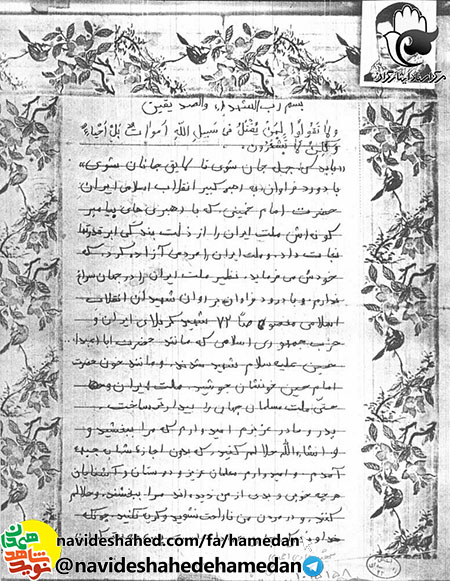 بسم رب الشهداء والصدیقین
ولا تقولوا لمن یقتل فی سبیل الله اموات بل احیاء
ولکن لا تشعرون.
«باید کن جهل جان شوی تا لایق جانان شوی»
با درود فراوان به رهبر کبیر انقلاب اسلامی ایران
حضرت امام خمینی که با رهبری های پیامبر
گونه اش ملت ایران را از ذلت بندگی ابرقدرتها
نجات داد. وملت ایران را مردمی آزاده کرد. که
خودش می فرماید. نظیر ملت ایران را در جهان سراغ
ندارم. و با درود فراوان بر روان شهیدان انقلاب
اسلامی مخصوصاً ۷۲ شهید کربلای ایران و
حزب جمهوری اسلامی که مانند حضرت ابا عبدا...
حسین علیه سلام شهید شدند. و مانند خون حضرت
امام حسین خونشان جوشید. ملت ایران و
حتی ملت مسلمان جهان را بیدار ساخت.
پدر و مادر عزیزم امیدوارم که مرا ببخشید و
انشاءالله حلالم کنید که بدون اجازه شان جبهه
آمدم. و امیدوارم معلمان عزیز و دوستان و آشنایان
هر چه خوبی و بدی از من دیده اند مرا ببخشند. و حلالم
کنند. و در مردن من ناراحت نشوید و گریه نکنید. چونکه
navideshahed.com/fa/hamedan
@navideshahedehamedan
نوید شاهد همدان